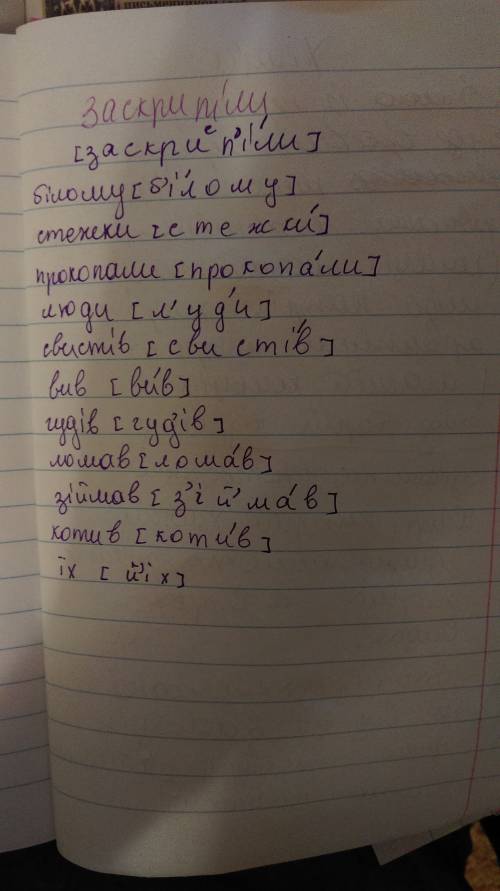 Заскрипіли
[заскриᵉп'іли]
білому [б'ілому]
стежки [стежки́]
прокопали [прокопа́ли]
люди [л'у́ди]
свистів [свисті́в]
вив [ви́в]
гудів [гуд'ів]
ломав [лома́в]
зіймав [з'ій'ма́в]
котив [коти́в]
їх [й'іх]